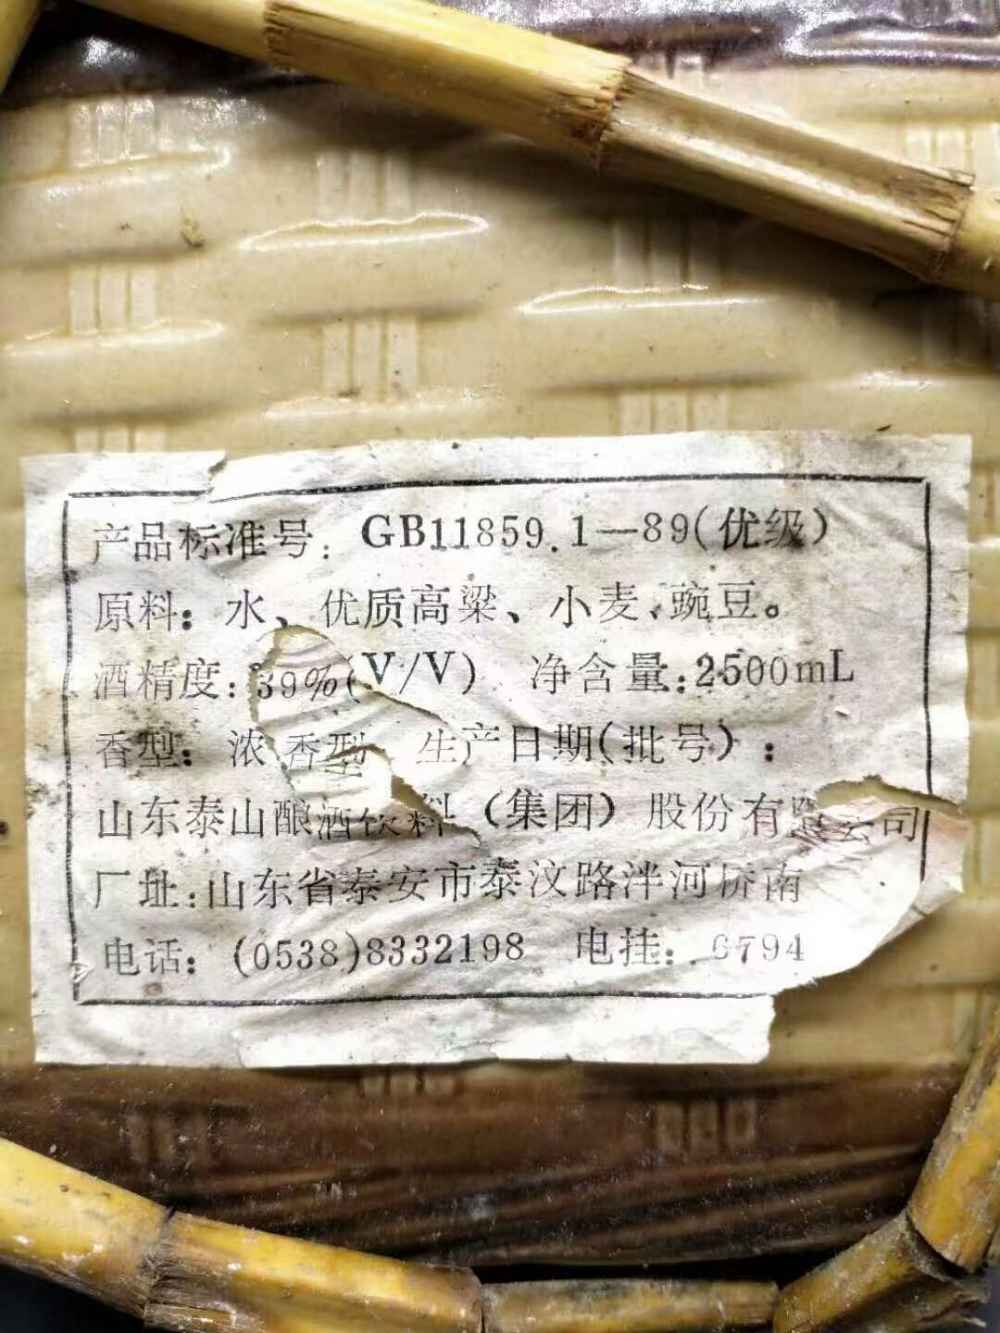 产品标准号：GB11859.1—89(优级)
原料：水、优质高粱、小麦、豌豆。
酒精度：39%(V/V) 净含量：2500mL
香型：浓香型 生产日期(批号)：
山东泰山酿酒饮料（集团）股份有限公司
厂址：山东省泰安市泰汶路泮河桥南
电话：(0538)8332198 电挂：6794